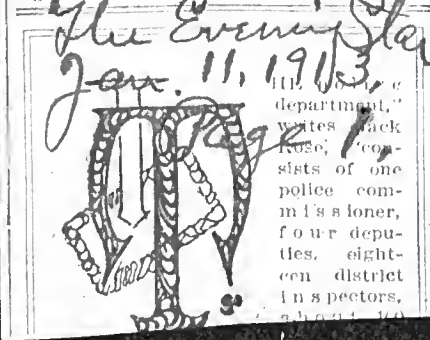 The Evening Star
Jan. 11, 1913,
Page 1,
THE police
department,"
writes Jack
Rose, "con-
sists of one
police com-
missioner,
four depu-
ties, eight-
een district
inspectors,
about